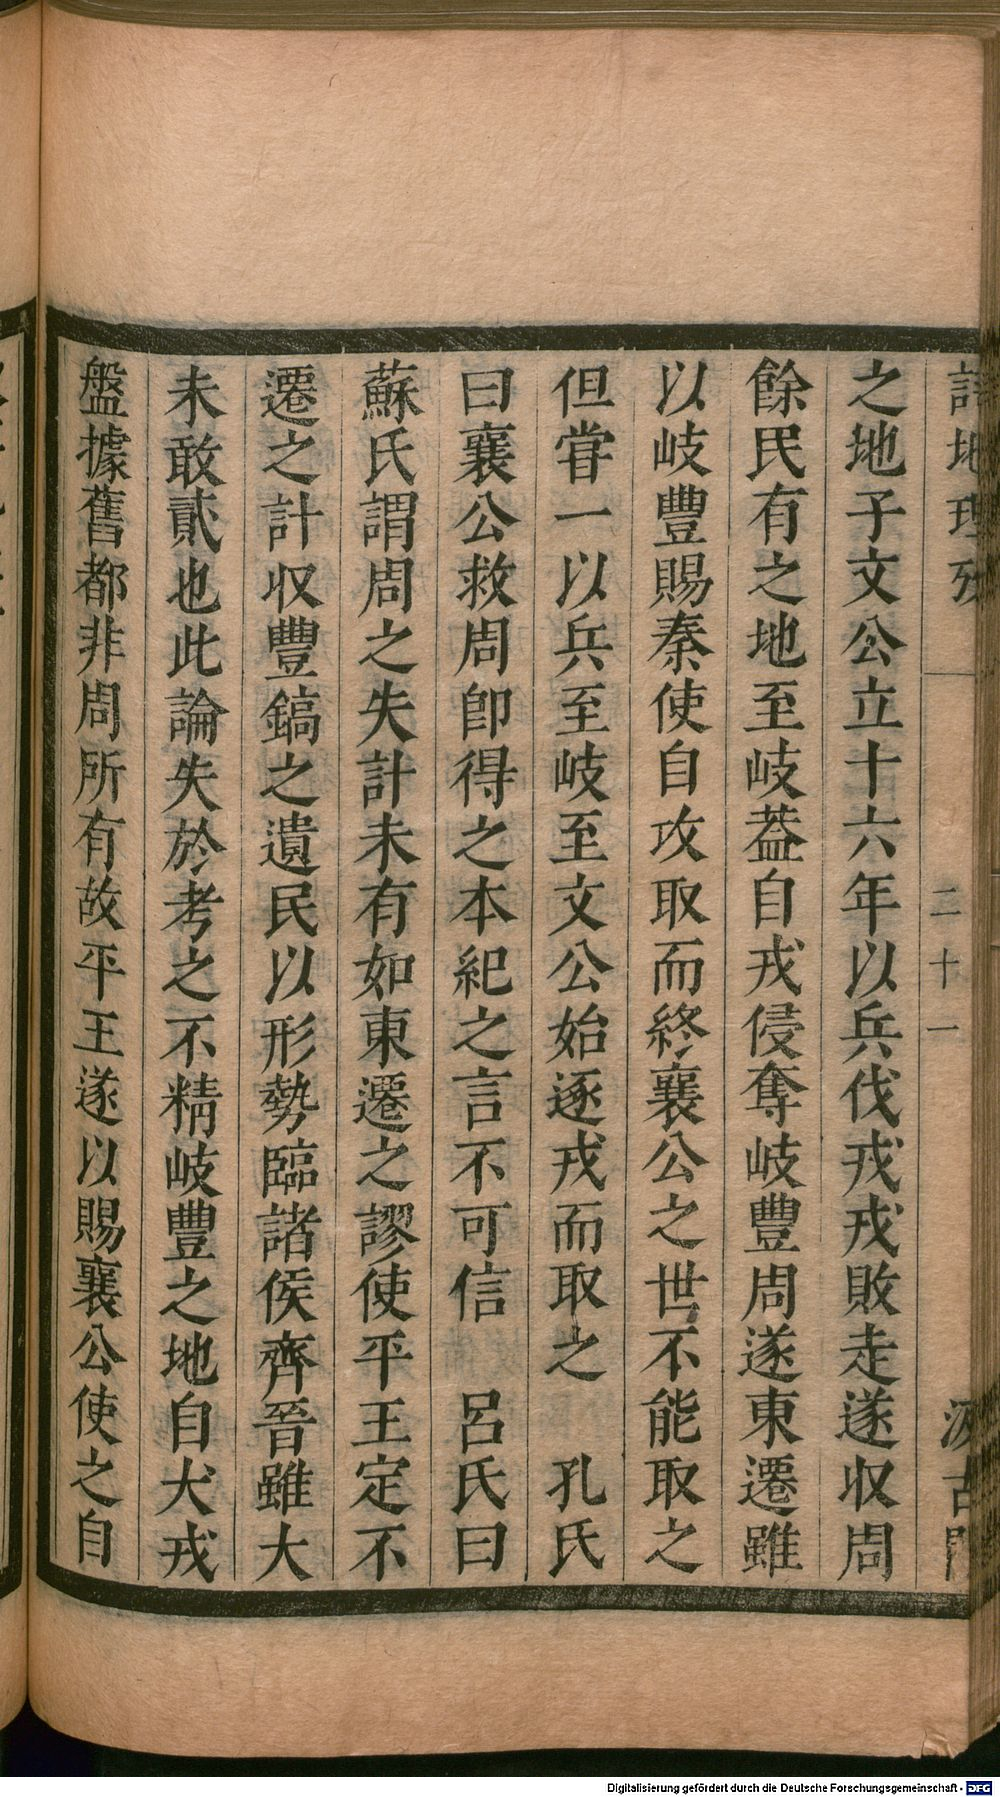 詩地理攷
二十一
汲古閣
之地子文公立十六年以兵伐戎戎敗走遂収周
餘民有之地至岐葢自戎侵奪岐豐周遂東遷雖
以岐豐賜秦使自攻取而終襄公之世不能取之
但甞一以兵至岐至文公始逐戎而取之　孔氏
曰襄公救周卽得之本紀之言不可信　呂氏曰
蘇氏謂周之失計未有如東遷之謬使平王定不
遷之計収豐鎬之遺民以形勢臨諸侯齊晉雖大
未敢貳也此論失於考之不精岐豐之地自犬戎
盤據舊都非周所有故平王遂以賜襄公使之自
Digitalisierung gefördert durch die Deutsche Forschungsgemeinschaft - DFG